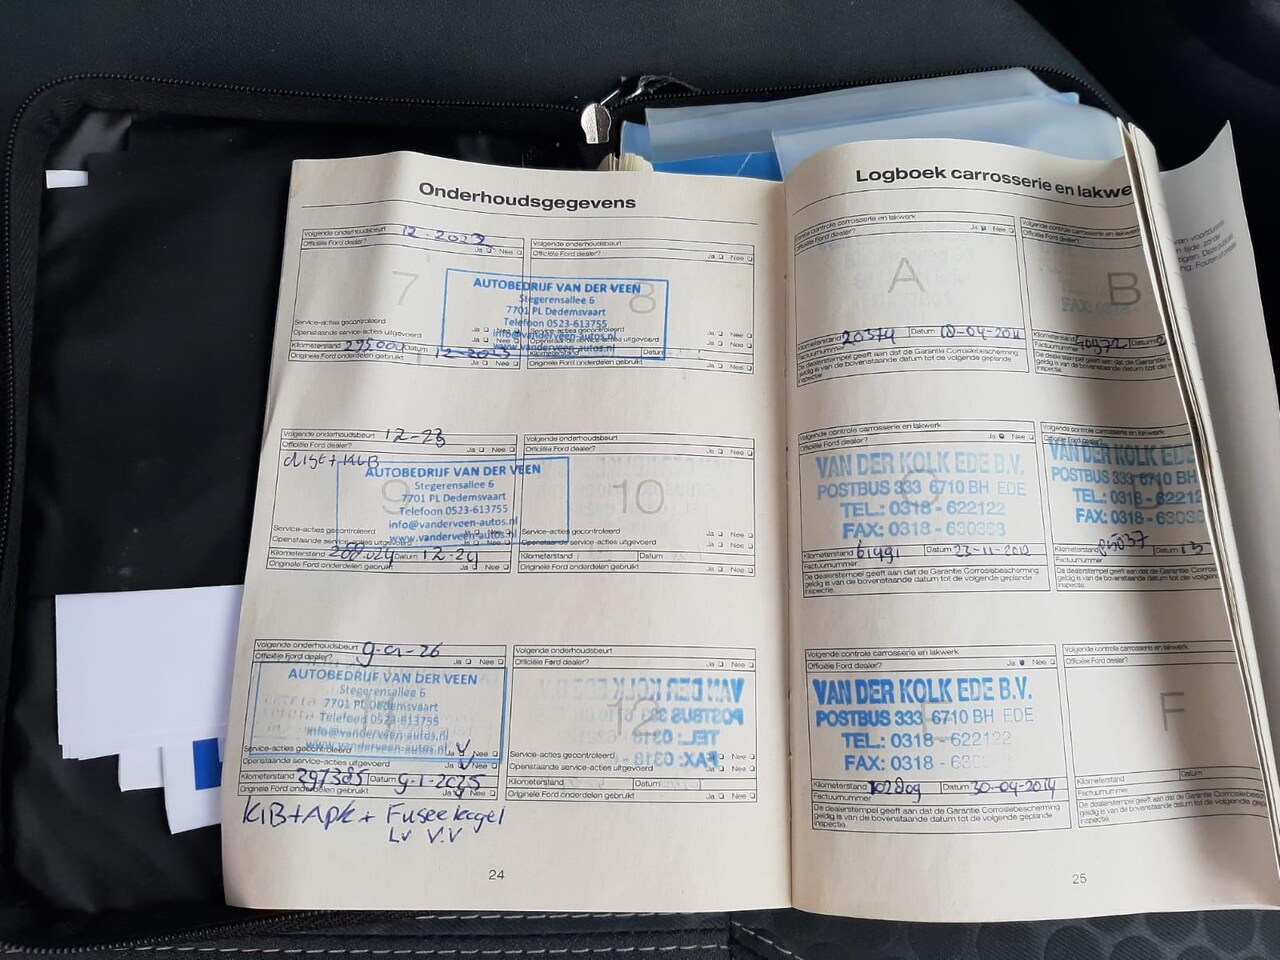 Onderhoudsgegevens
Volgende onderhoudsbeurt
Officiële Ford dealer? Ja Nee
7
Service-acties gecontroleerd
Openstaande service-acties uitgevoerd
Kilometerstand Datum
Originele Ford onderdelen gebruikt
Volgende onderhoudsbeurt
Officiële Ford dealer? Ja Nee
8
AUTOBEDRIJF VAN DER VEEN
Stegerensallee 6
7701 PL Dedemsvaart
Telefoon 0523-613755
info@vanderveen-autos.nl
www.vanderveen-autos.nl
Originele Ford onderdelen gebruikt Ja Nee
Volgende onderhoudsbeurt 12-23
Officiële Ford dealer? Ja Nee
9
AUTOBEDRIJF VAN DER VEEN
Stegerensallee 6
7701 PL Dedemsvaart
Telefoon 0523-613755
info@vanderveen-autos.nl
www.vanderveen-autos.nl
Service-acties gecontroleerd
Openstaande service-acties uitgevoerd
Kilometerstand Datum 12-24
Originele Ford onderdelen gebruikt Ja Nee
Volgende onderhoudsbeurt
Officiële Ford dealer? Ja Nee
10
Service-acties gecontroleerd
Openstaande service-acties uitgevoerd
Kilometerstand Datum
Originele Ford onderdelen gebruikt Ja Nee
Volgende onderhoudsbeurt 9-01-26
Officiële Ford dealer? Ja Nee
11
AUTOBEDRIJF VAN DER VEEN
Stegerensallee 6
7701 PL Dedemsvaart
Telefoon 0523-613755
info@vanderveen-autos.nl
www.vanderveen-autos.nl
Service-acties gecontroleerd Ja Nee
Openstaande service-acties uitgevoerd
Kilometerstand 297385 Datum 9-1-2025
Originele Ford onderdelen gebruikt Ja Nee
KlB+Apk+ Fuseekogel
Lv V.V
Volgende onderhoudsbeurt
Officiële Ford dealer? Ja Nee
12
Service-acties gecontroleerd
Openstaande service-acties uitgevoerd
Kilometerstand Datum
Originele Ford onderdelen gebruikt Ja Nee
24
Logboek carrosserie en lakwe
controle carrosserie en lakwerk
Officiële Ford dealer? Ja Nee
A
Kilometerstand 20374 Datum
Factuurnummer
De dealerstempel geeft aan dat de Garantie Corrosiebescherming
geldig is van de bovenstaande datum tot de volgende geplande
inspectie.
Volgende controle carrosserie en
Officiële Ford dealer?
B
Kilometerstand Datum
Factuurnummer
De dealerstempel geeft aan dat de Garantie
geldig is van de bovenstaande datum tot de
inspectie.
Volgende controle carrosserie en lakwerk
Officiële Ford dealer? Ja Nee
VAN DER KOLK EDE B.V.
POSTBUS 333 6710 BH EDE
TEL.: 0318 - 622122
FAX: 0318 - 630363
Kilometerstand 61491 Datum 23-11-2012
Factuurnummer
De dealerstempel geeft aan dat de Garantie Corrosiebescherming
geldig is van de bovenstaande datum tot de volgende geplande
inspectie.
Volgende controle carrosserie en lakwerk
Officiële Ford dealer?
VAN DER KOLK EDE
POSTBUS 333 6710 BH
TEL.: 0318 -
FAX: 0318 -
Kilometerstand Datum
Factuurnummer
De dealerstempel geeft aan dat de Garantie
geldig is van de bovenstaande datum tot de
inspectie.
Volgende controle carrosserie en lakwerk
Officiële Ford dealer? Ja Nee
E
VAN DER KOLK EDE B.V.
POSTBUS 333 6710 BH EDE
TEL.: 0318 - 622122
FAX: 0318 -
Kilometerstand 102809 Datum 30-04-2014
Factuurnummer
De dealerstempel geeft aan dat de Garantie Corrosiebescherming
geldig is van de bovenstaande datum tot de volgende geplande
inspectie.
Volgende controle carrosserie en lakwerk
Officiële Ford dealer?
F
Kilometerstand Datum
Factuurnummer
De dealerstempel geeft aan dat de Garantie
geldig is van de bovenstaande datum tot de
inspectie.
25